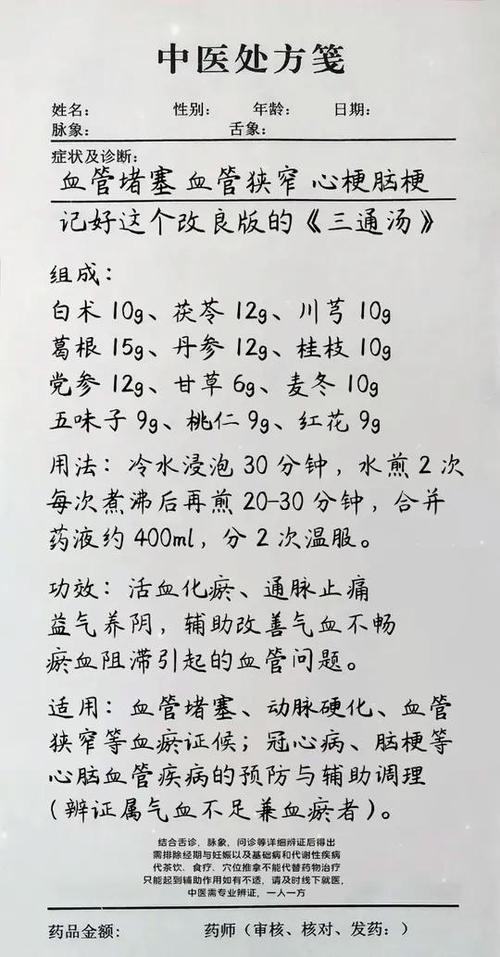 中医处方笺
姓名： 性别： 年龄： 日期：
脉象： 舌象：
症状及诊断：
血管堵塞 血管狭窄 心梗脑梗
记好这个改良版的《三通汤》
组成：
白术 10g、茯苓 12g、川芎 10g
葛根 15g、丹参 12g、桂枝 10g
党参 12g、甘草 6g、麦冬 10g
五味子 9g、桃仁 9g、红花 9g
用法：冷水浸泡 30 分钟，水煎 2 次
每次煮沸后再煎 20-30 分钟，合并
药液约 400ml，分 2 次温服。
功效：活血化瘀、通脉止痛
益气养阴，辅助改善气血不畅
瘀血阻滞引起的血管问题。
适用：血管堵塞、动脉硬化、血管
狭窄等血瘀证候；冠心病、脑梗等
心脑血管疾病的预防与辅助调理
（辨证属气血不足兼血瘀者）。
结合舌诊，脉象，问诊等详细辨证后得出
需排除经期与妊娠以及基础病和代谢性疾病
代茶饮、食疗、穴位推拿不能代替药物治疗
只能起到辅助作用如有不适，请及时线下就医，
中医需专业辨证，一人一方
药品金额： 药师（审核、核对、发药：）